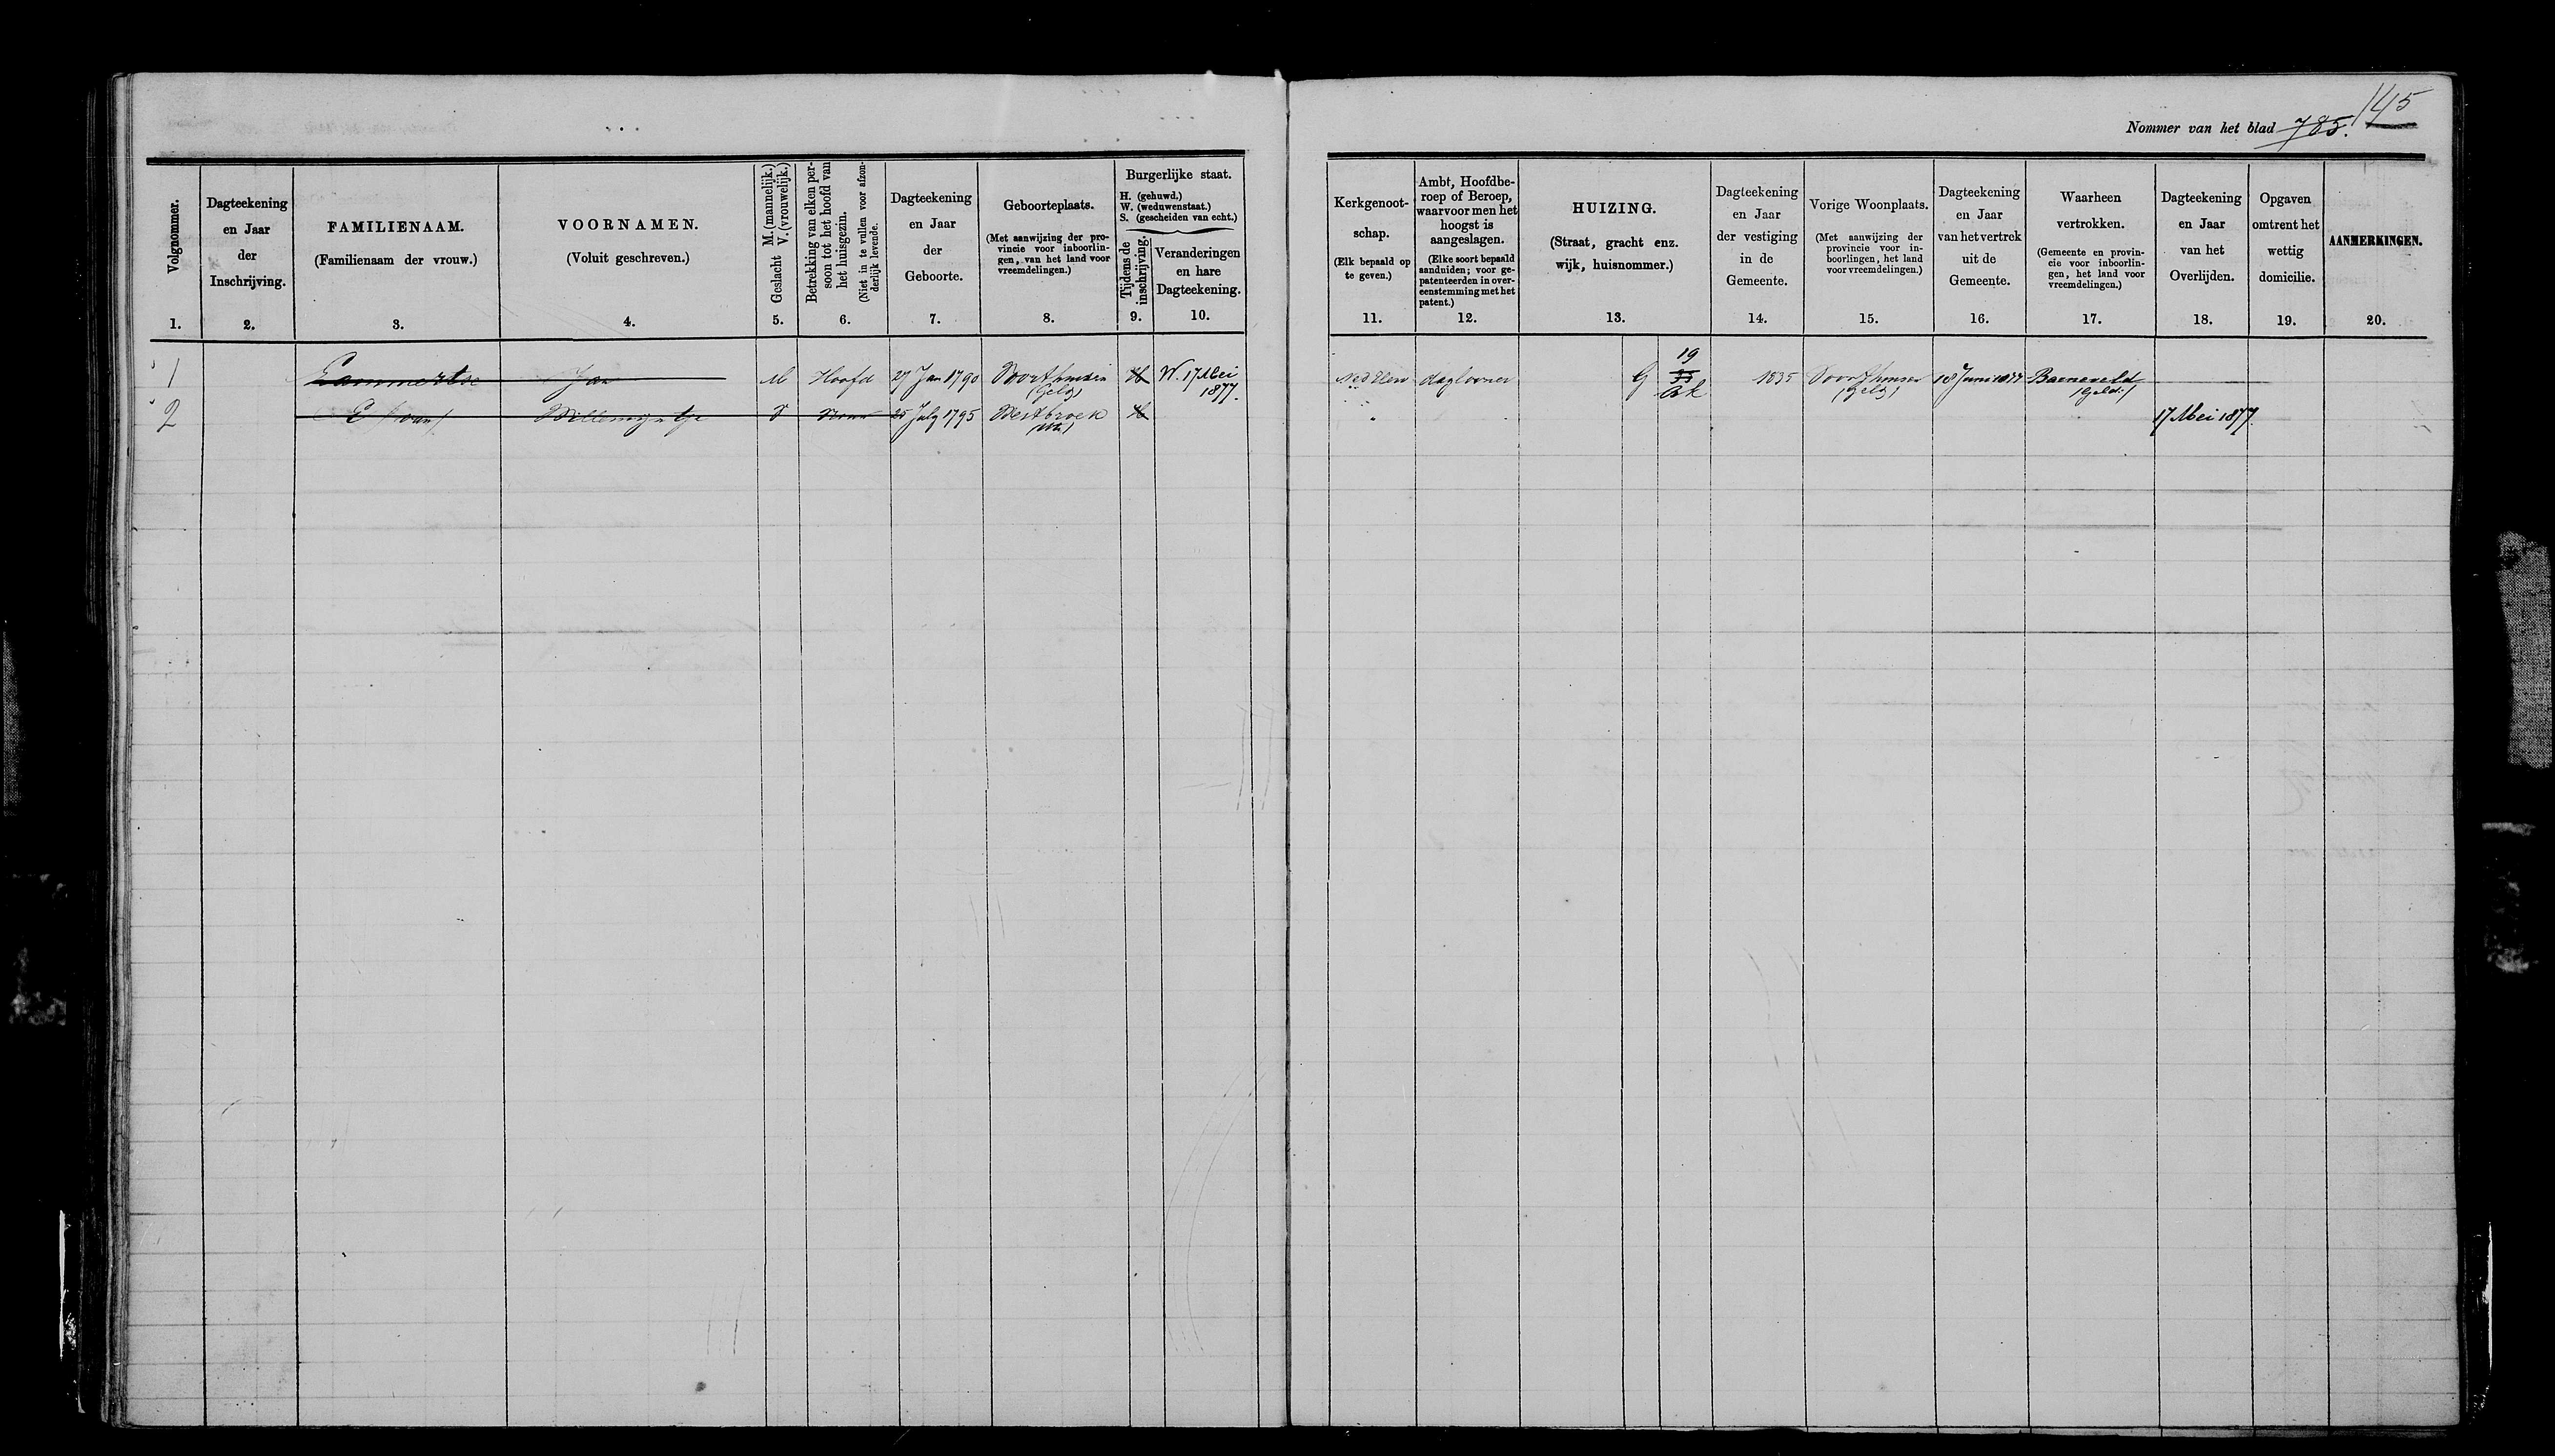 145
Nommer van het blad 785.
Volgnommer.
1.
Dagteekening
en Jaar
der
Inschrijving.
2.
FAMILIENAAM.
(Familienaam der vrouw.)
3.
VOORNAMEN.
(Voluit geschreven.)
4.
Geslacht M. (mannelijk.)
V. (vrouwelijk.)
5.
Betrekking van elken per-
soon tot het hoofd van
het huisgezin.
(Niet in te vullen voor afzon-
derlijk levende.
6.
Dagteekening
en Jaar
der
Geboorte.
7.
Geboorteplaats.
(Met aanwijzing der pro-
vincie voor inboorlin-
gen, van het land voor
vreemdelingen.)
8.
Burgerlijke staat.
H. (gehuwd.)
W. (weduwenstaat.)
S. (gescheiden van echt.)
Tijdens de
inschrijving.
9.
Veranderingen
en hare
Dagteekening.
10.
Kerkgenoot-
schap.
(Elk bepaald op
te geven.)
11.
Ambt, Hoofdbe-
roep of Beroep,
waarvoor men het
hoogst is
aangeslagen.
(Elke soort bepaald
aanduiden; voor ge-
patenteerden in over-
eenstemming met het
patent.)
12.
HUIZING.
(Straat, gracht enz.
wijk, huisnommer.)
13.
Dagteekening
en Jaar
der vestiging
in de
Gemeente.
14.
Vorige Woonplaats.
(Met aanwijzing der
provincie voor in-
boorlingen, het land
voor vreemdelingen.)
15.
Dagteekening
en Jaar
van het vertrek
uit de
Gemeente.
16.
Waarheen
vertrokken.
(Gemeente en provin-
cie voor inboorlin-
gen, het land voor
vreemdelingen.)
17.
Dagteekening
en Jaar
van het
Overlijden.
18.
Opgaven
omtrent het
wettig
domicilie.
19.
AANMERKINGEN.
20.
1 Lammertse Jan M Hoofd 27 Jan 1790 Voorthuizen (Geld) H W. 17 Mei 1877. Ned Herv daglooner G 19 1835 Voorthuizen (Geld) 18 Juni 1877 Barneveld (Geld.)
2 E (van) Willemijntje V Vrouw 25 July 1795 Westbroek (Utr) H " 17 Mei 1877.